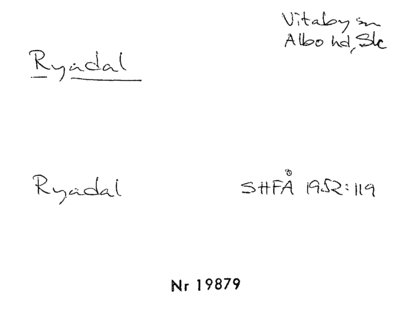 Vitaby sn
Albo hd, Skc
Ryadal
Ryadal
SHFÅ 1952:119
Nr 19879